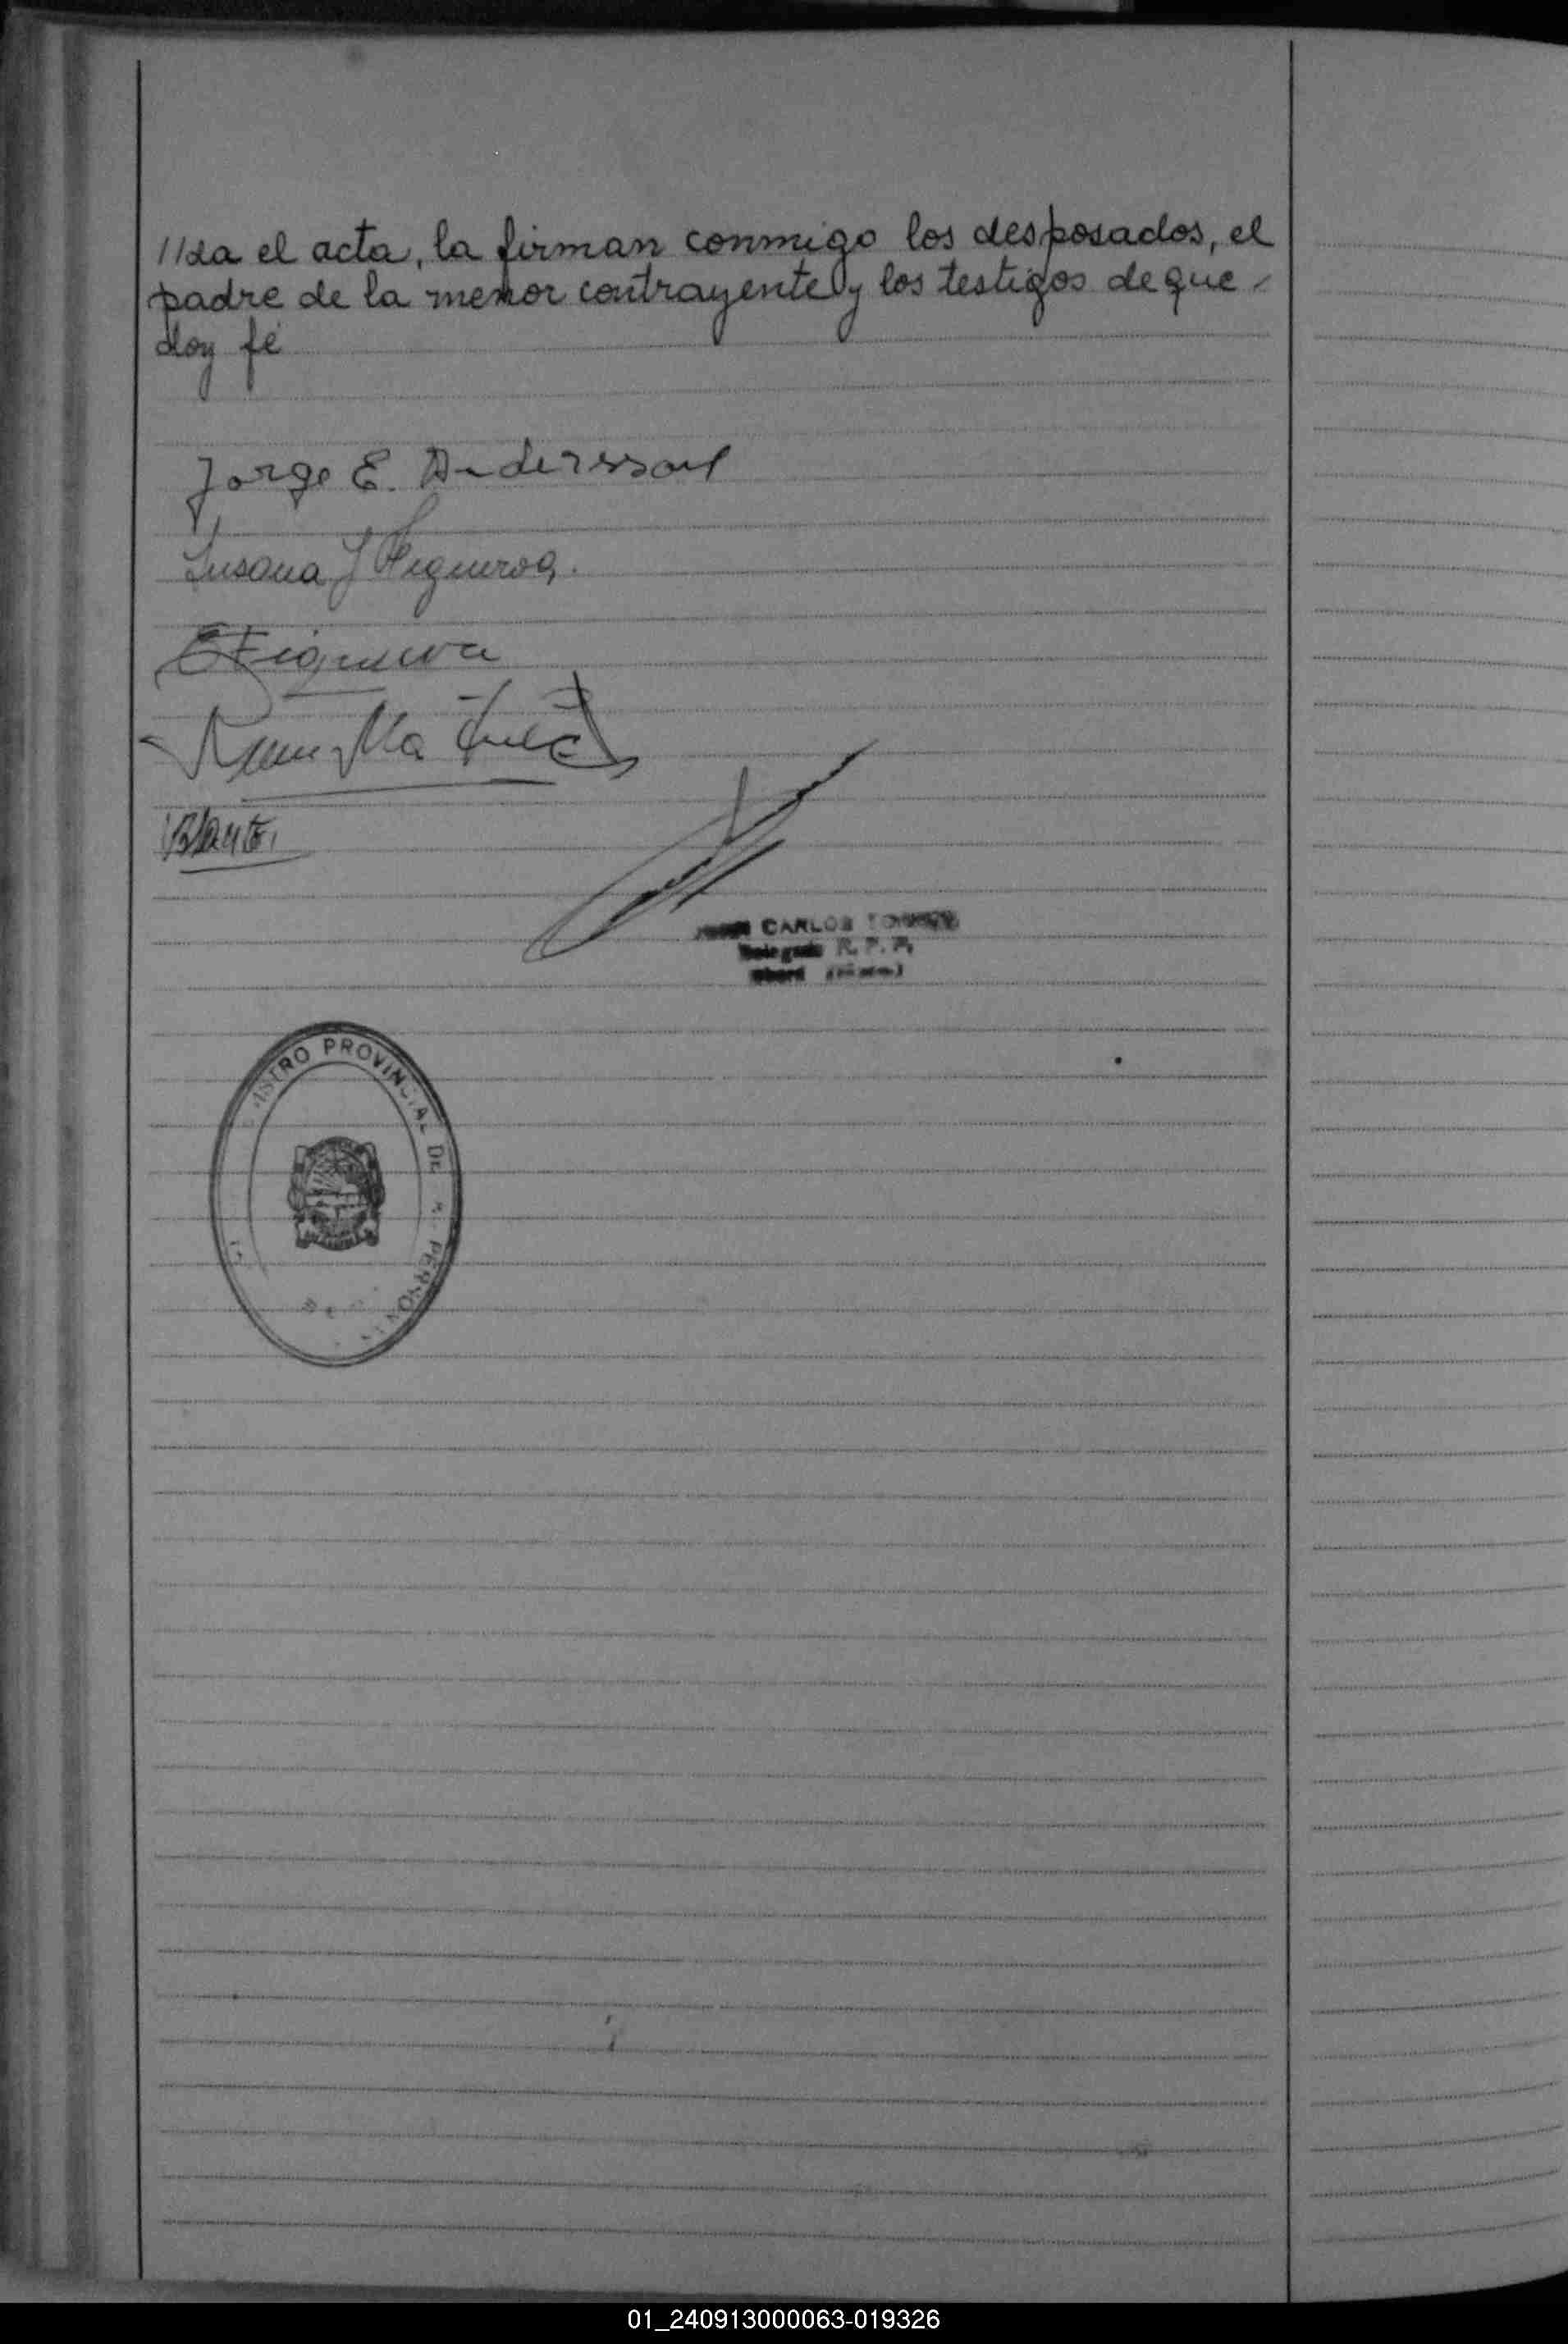 //da el acta, la firman conmigo los desposados, el
padre de la menor contrayente y los testigos de que
doy fé
Jorge E. Anderssout
Susana J Figueroa.
EFigueroa
CARLOS
R. P. P.
PROVINCIAL DE
01_240913000063-019326